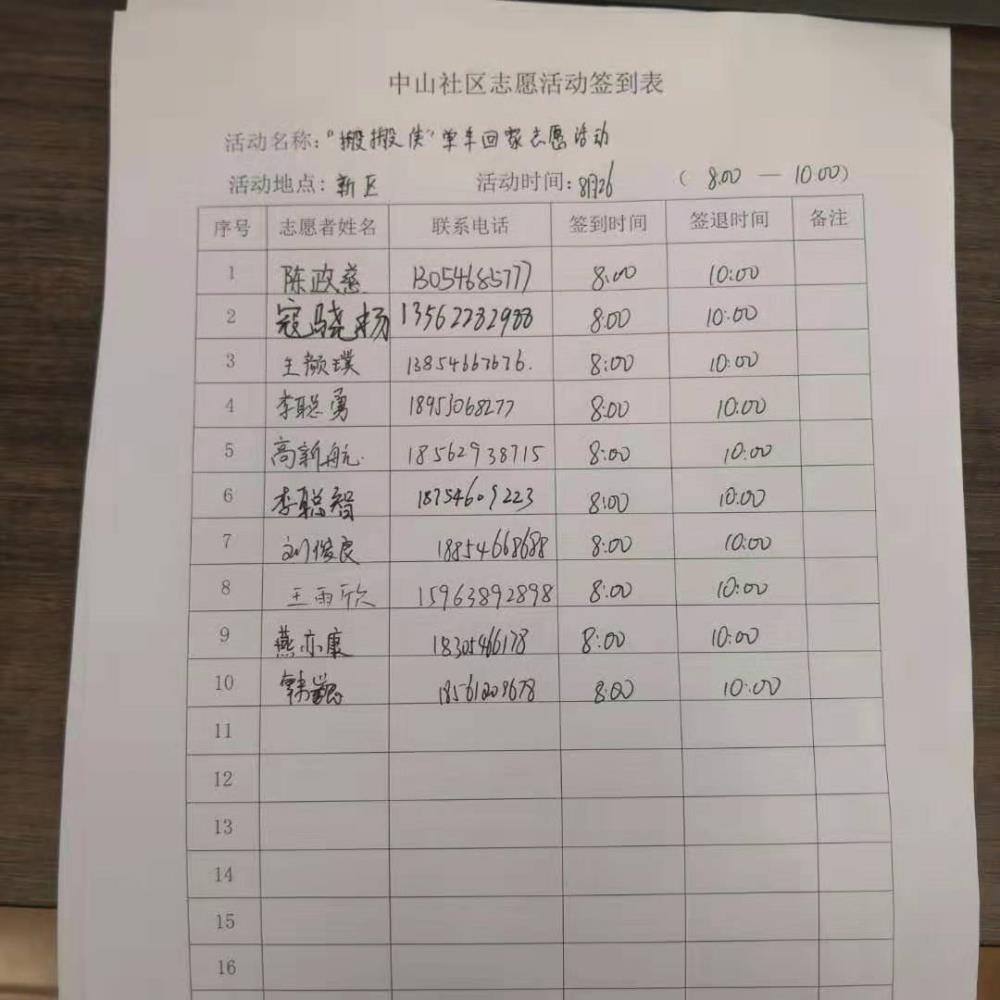 中山社区志愿活动签到表
活动名称:"搬搬侠"单车回家志愿活动
活动地点:新区 活动时间:8月26 (8.00 — 10.00)
序号 志愿者姓名 联系电话 签到时间 签退时间 备注
1 陈政慈 13054685777 8:00 10:00
2 寇骁杨 13562282988 8:00 10:00
3 王颜璞 13854667676. 8:00 10:00
4 李聪勇 18953068277 8:00 10:00
5 高新航 18562938715 8:00 10:00
6 李聪智 18754609223 8:00 10:00
7 刘俊良 18854668688 8:00 10:00
8 王雨欣 15963892898 8:00 10:00
9 燕亦康 18305466178 8:00 10:00
10 韩 18561209678 8:00 10:00
11
12
13
14
15
16